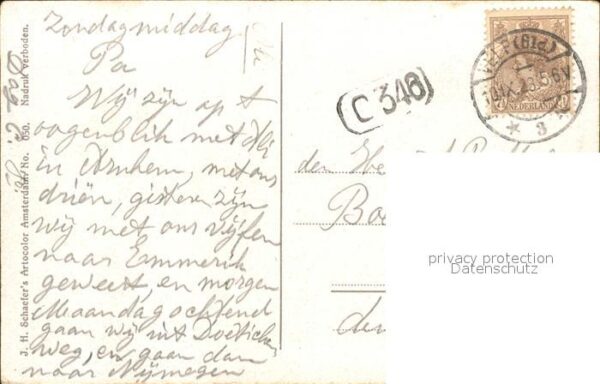 Zondagmiddag
Pa
Wij zijn op 't
oogenblik met
in Arnhem, met ons
driën, gisteren zijn
wij met ons vijfen
naar Emmerik
geweest, en morgen
Maandagochtend
gaan wij uit
weg, en gaan dan
naar Nijmegen
Dag
J. H. Schaefer's Artocolor Amsterdam. No. 050. Nadruk verboden.
C 346
NEDERLAND
3
den
Bo
den
privacy protection
Datenschutz